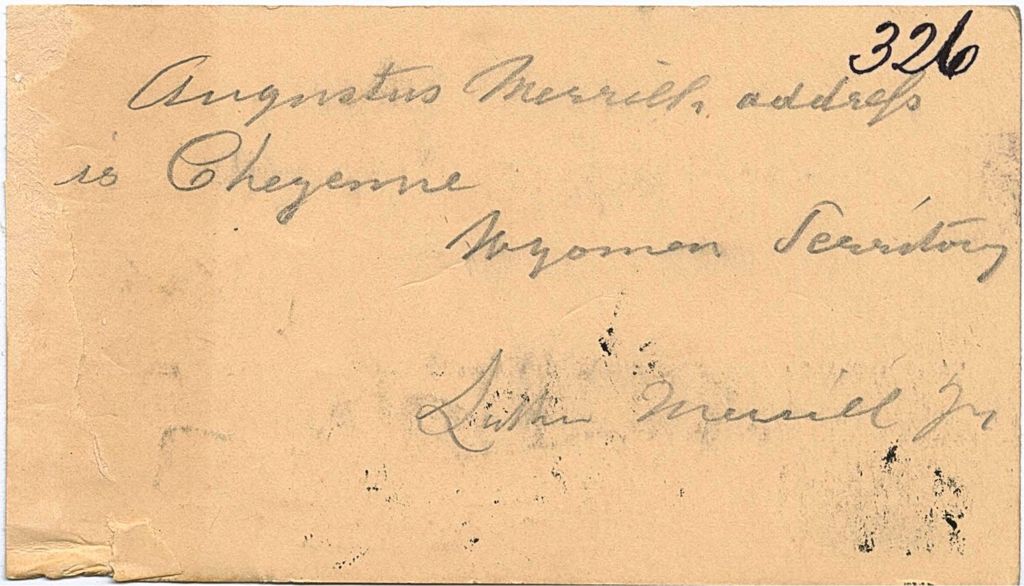 326
Augustus Merrills address
is Cheyenne
Wyomen Territory
Luther Merrill Jr